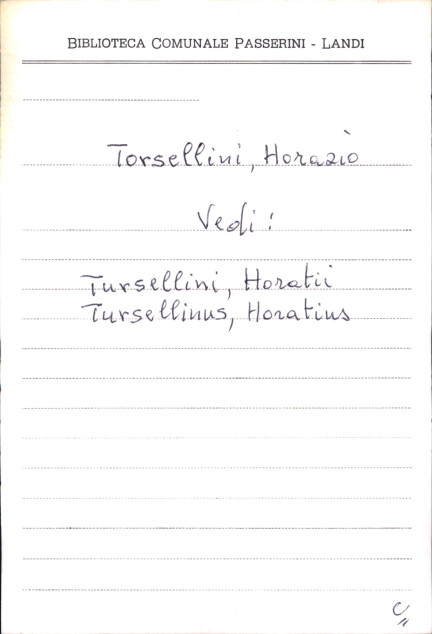 BIBLIOTECA COMUNALE PASSERINI - LANDI
Torsellini, Horazio
Vedi:
Tursellini, Horatii
Tursellinus, Horatius